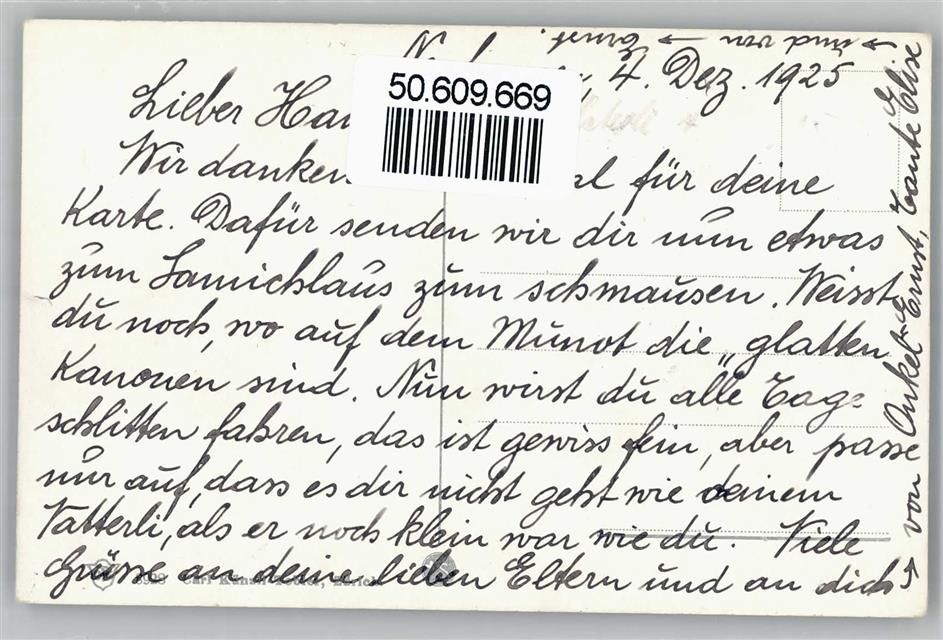 4. Dez. 1925
50.609.669
Lieber
Wir danken für deine
Karte. Dafür senden wir dir nun etwas
zum Samichlaus zum schmausen. Weisst
du noch, wo auf dem Munot die „glatten
Kanonen sind. Nun wirst du alle Tage
schlitten fahren, das ist gewiss fein, aber passe
nur auf, dass es dir nicht geht wie deinem
Vatterli, als er noch klein war wie du. Viele
Grüsse an deine lieben Eltern und an dich
→ von Onkel Ernst, Tante Elise
→ und von → Ernst.
3923 Carl Künzli Zürich